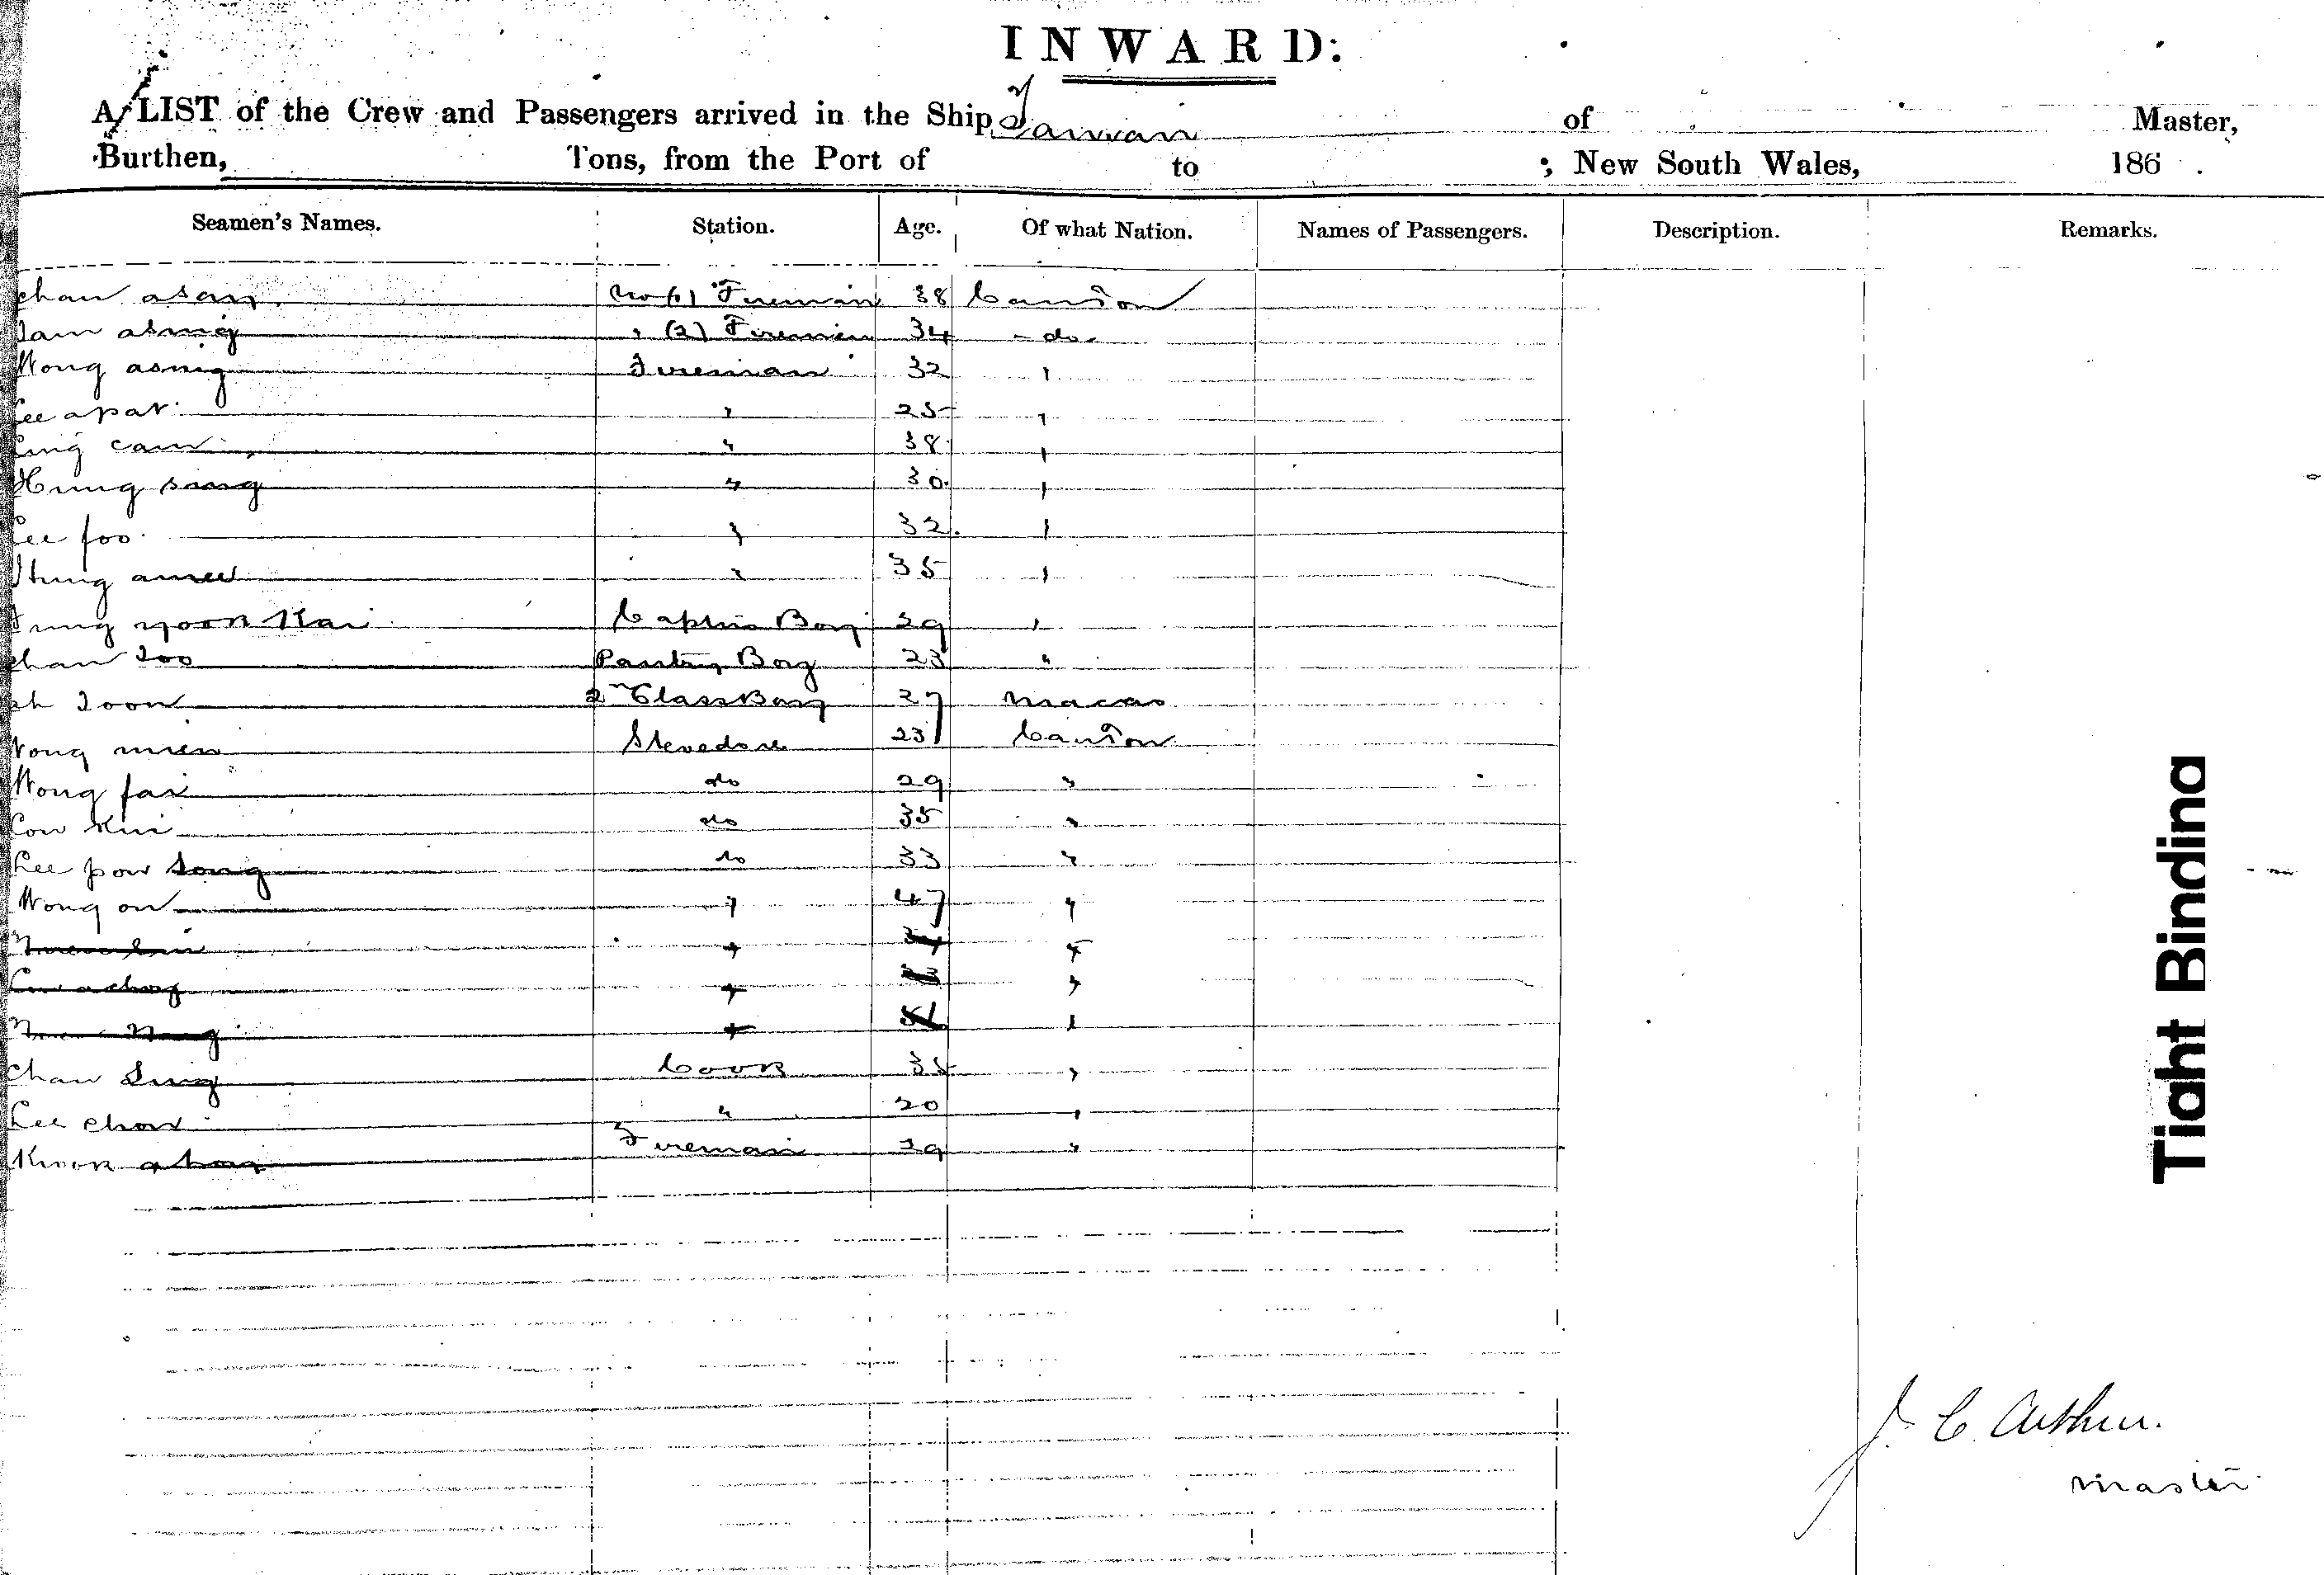 INWARD:
A LIST of the Crew and Passengers arrived in the Ship Taiwan of Master,
Burthen, Tons, from the Port of to ; New South Wales, 186 .
Seamen's Names. Station. Age. Of what Nation. Names of Passengers. Description. Remarks.
Chan asan No (1) Fireman 38 Canton
Tam asing " (2) Fireman 34 - do -
Wong asing Fireman 32 "
Lee apat " 25 "
Ling cam " 38 "
Hung sang " 30 "
Lee foo " 32 "
" 35 "
Captns Boy 29 "
Chan Too Pantry Boy 23 "
Toon 2nd Class Boy 27 Macao
Wong Stevedore 23 Canton
Wong fai do 29 "
Low Kui do 35 "
Lee pow Song do 33 "
Wong on " 47 "
" "
" "
" "
Chan Sing Cook 35 "
Lee chow " 20 "
Kwok Fireman 29 "
Tight Binding
J. C. Arthur.
Master